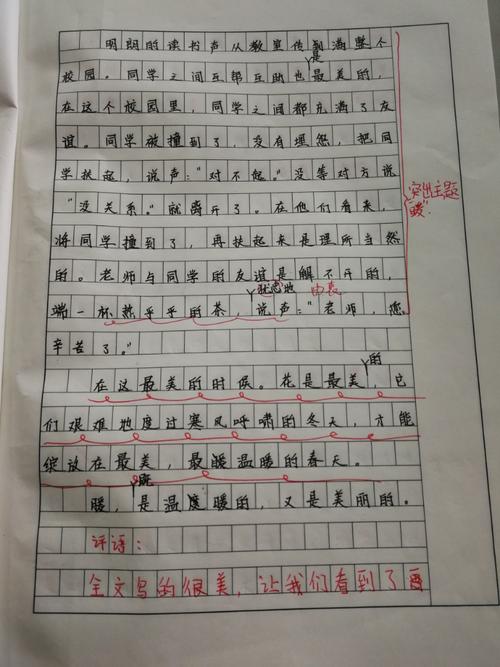 明朗的读书声从教室传到满整个
是
校园。同学之间互帮互助也最美的，
在这个校园里，同学之间都充满了友
谊。同学被撞到了，没有埋怨，把同
学扶起，说声："对不起。"没等对方说
突出主题
"暖".
"没关系。"就离开了。在他们看来，
将同学撞到了，再扶起来是理所当然
的。老师与同学的友谊是解不开的，
端一杯热乎乎的茶，说声："老师，您
辛苦了。"
的
在这最美的时候。花是最美，它
们艰难地度过寒风呼啸的冬天，才能
绽放在最美，最暖温暖的春天。
暖，是温度暖的，又是美丽的。
评语：
全文写的很美，让我们看到了